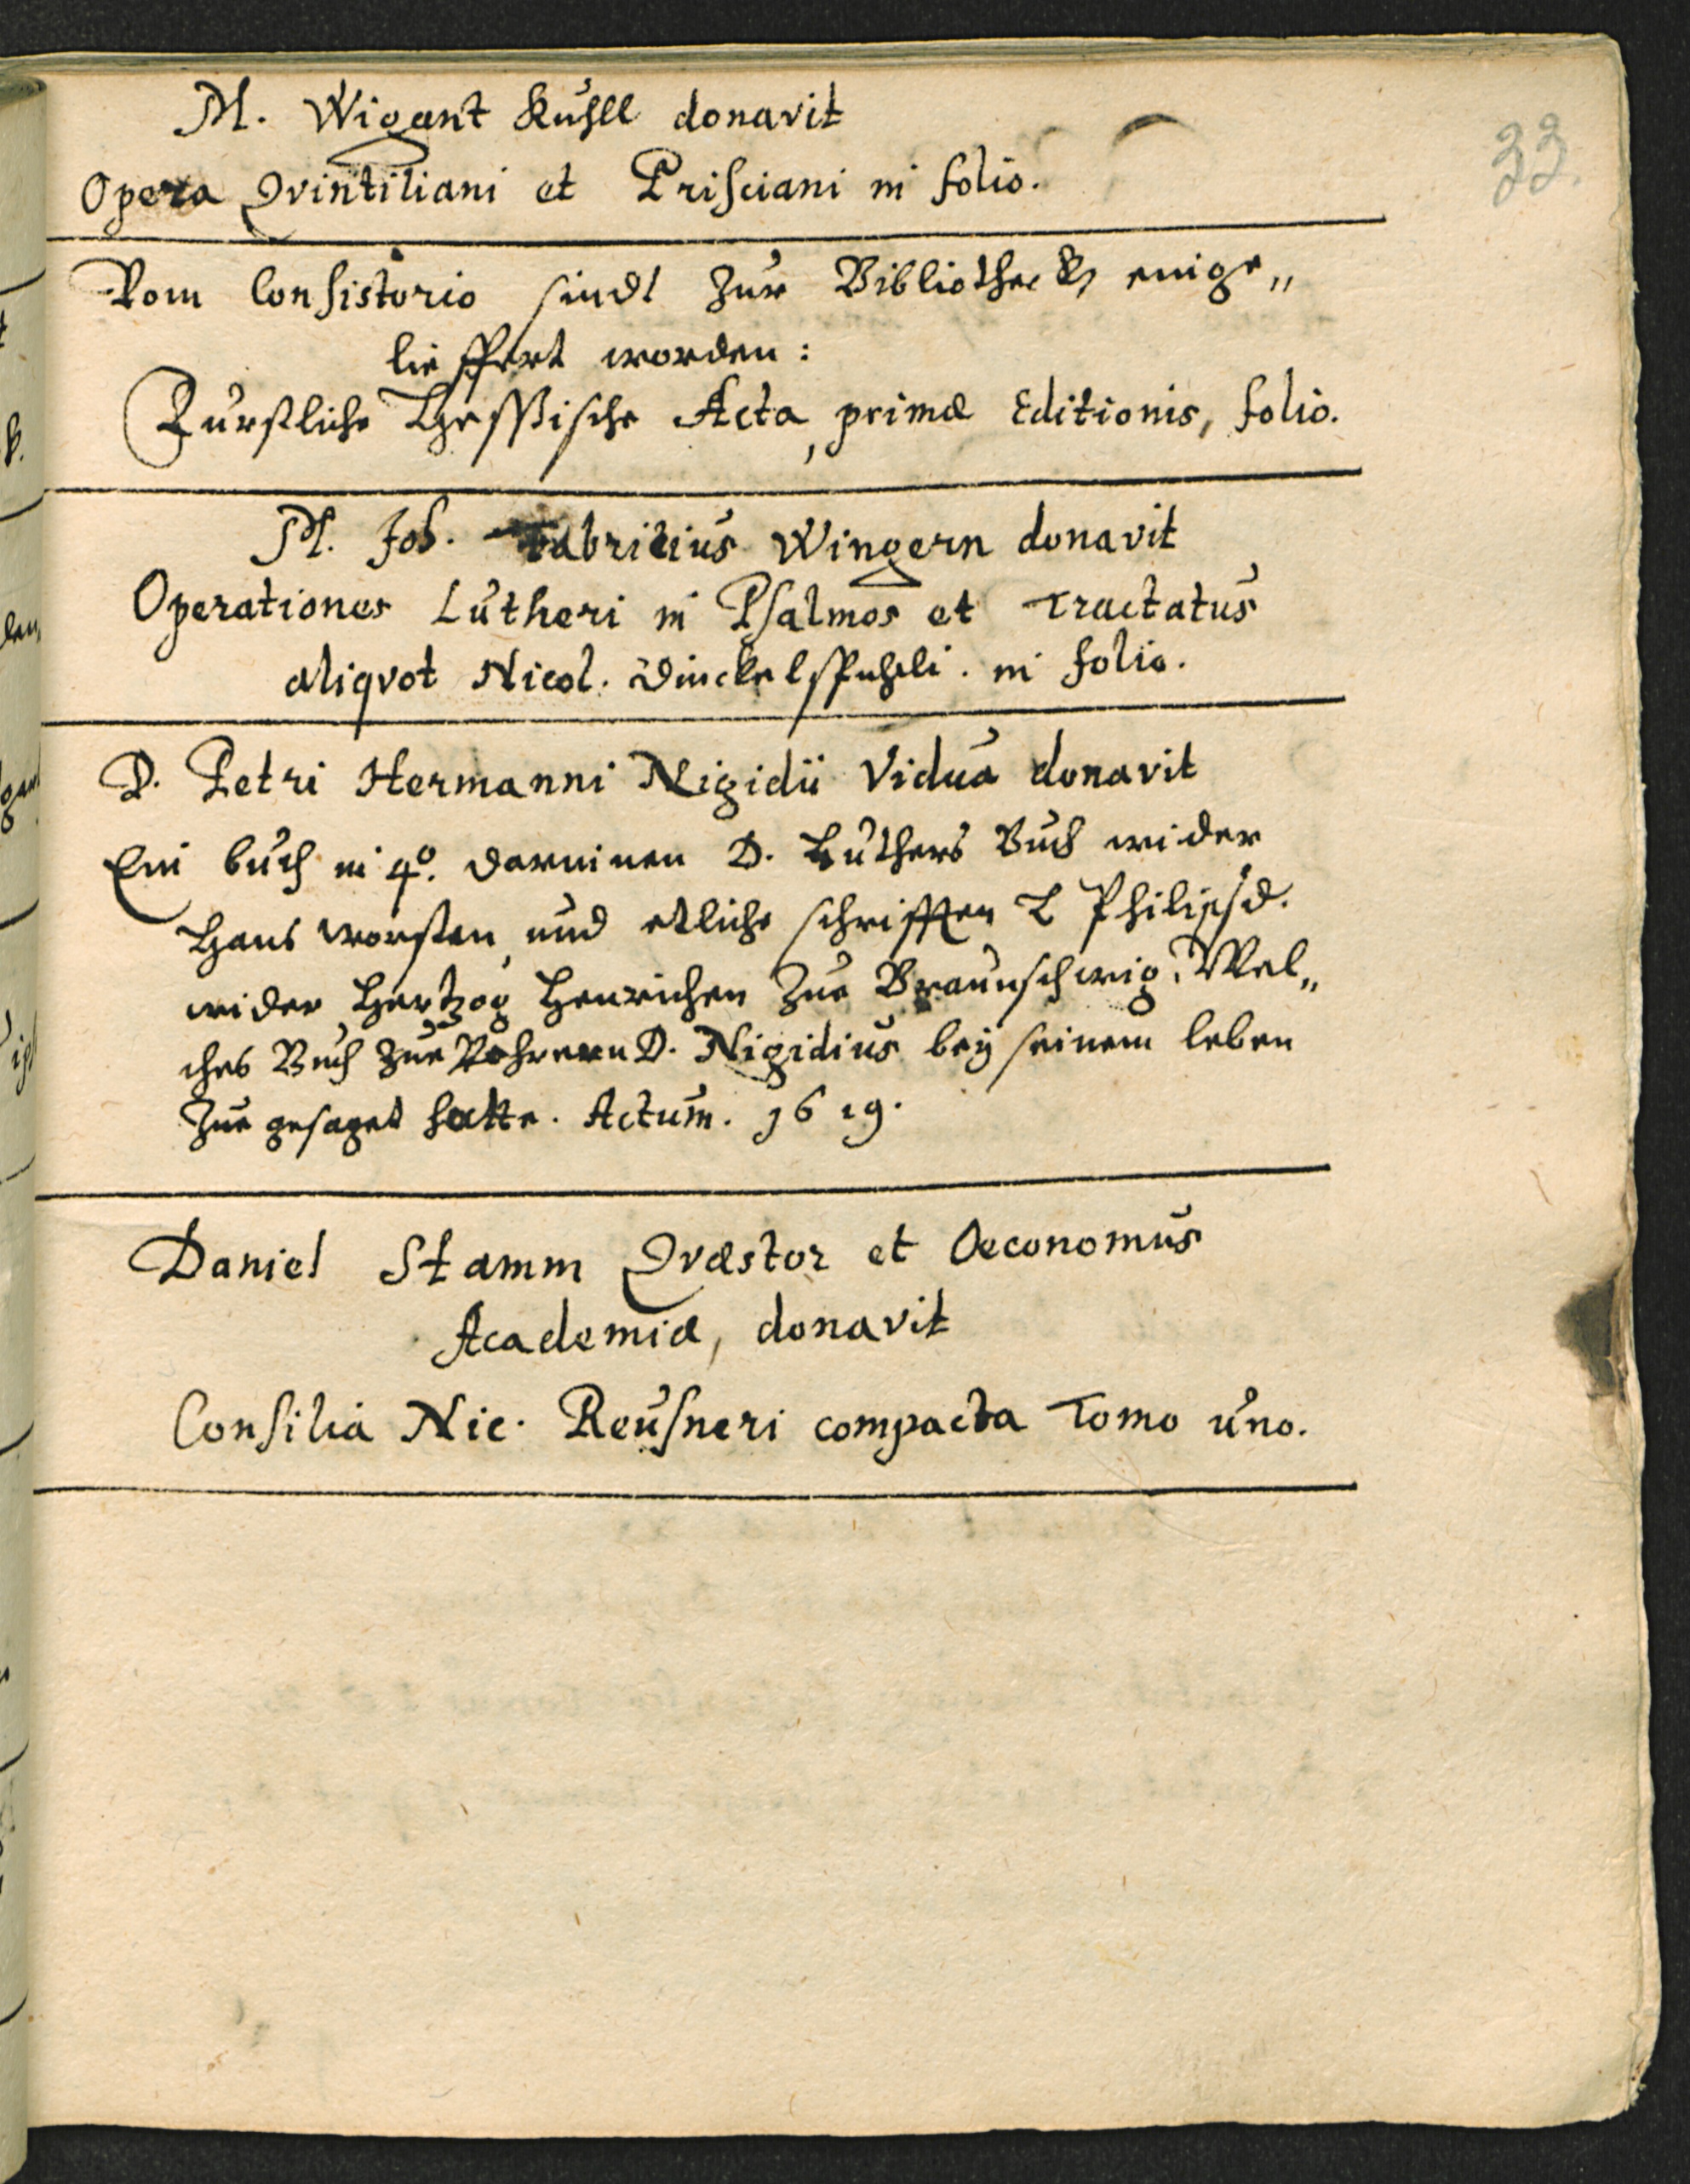 33.
M. Wigant Kuhll donavit
Opera Qvintiliani et Prisciani in folio.
Vom Consistorio sindt zur Bibliotheck einge„
lieffert worden:
Fürstliche Hessische Acta, primæ Editionis, folio.
M. Joh. Fabritius Wingern donavit
Operationes Lutheri in Psalmos et Tractatus
aliqvot Nicol. Dinckelspuheli. in folio.
D. Petri Hermanni Nigidii Vidua donavit
Ein buch in 4º. darinnen D. Luthers Buch wider
Hans Worsten, und etliche schrifften L Philipsd.
wider Hertzog Henrichen zue Braunschwig. Wel„
ches Buch zue D. Nigidius bey seinem leben
zue gesaget hatte. Actum. 1619.
Daniel Stamm Qvæstor et Oeconomus
Academiæ, donavit
Consilia Nic. Reusneri compacta Tomo uno.